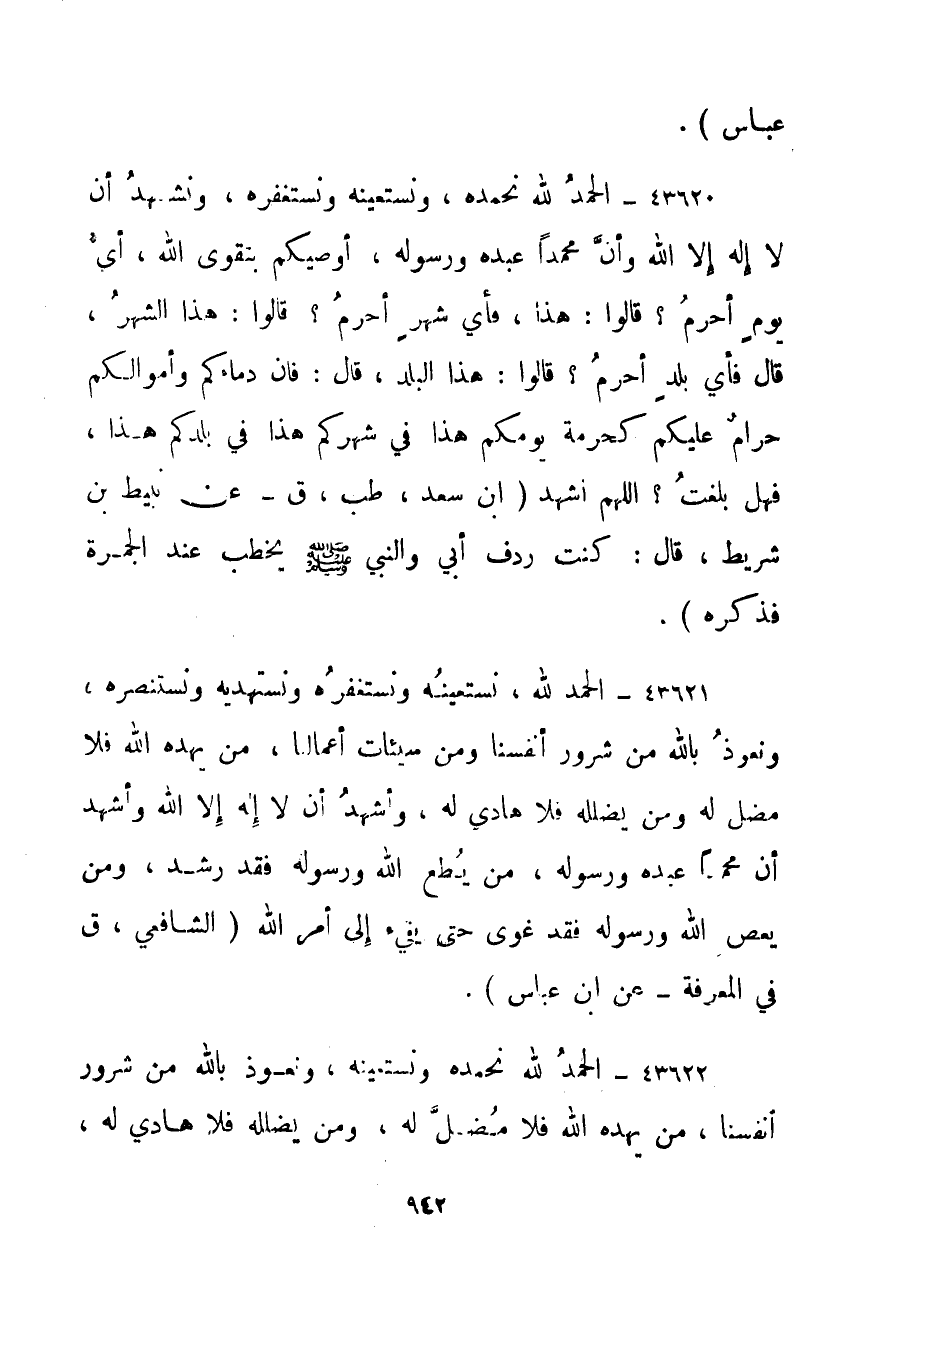 عباس ) .
٤٣٦٢٠ ـ الحمدُ لله نحمده ، ونستعينه ونستغفره ، ونشهدُ أن
لا إله إلا الله وأنَّ محمداً عبده ورسوله ، أوصيكم بتقوى الله ، أيُّ
يومٍ أحرمُ ؟ قالوا : هذا ، فأي شهرٍ أحرمُ ؟ قالوا : هذا الشهرُ ،
قال فأي بلدٍ أحرمُ ؟ قالوا : هذا البلد ، قال : فان دماءكم وأموالكم
حرامٌ عليكم كحرمة يومكم هذا في شهركم هذا في بلدكم هذا ،
فهل بلغتُ ؟ اللهم اشهد ( ابن سعد ، طب ، ق ـ عن نبيط بن
شريط ، قال : كنت ردف أبي والنبي ﷺ يخطب عند الجمرة
فذكره ) .
٤٣٦٢١ ـ الحمد لله ، نستعينُه ونستغفرُه ونستهديه ونستنصره ،
ونعوذُ بالله من شرور أنفسنا ومن سيئات أعمالنا ، من يهده الله فلا
مضل له ومن يضلله فلا هادي له ، وأشهدُ أن لا إله إلا الله وأشهد
أن محمداً عبده ورسوله ، من يُطع الله ورسوله فقد رشد ، ومن
يعص الله ورسوله فقد غوى حتى يفيء إلى أمر الله ( الشافعي ، ق
في المعرفة ـ عن ابن عباس ) .
٤٣٦٢٢ ـ الحمدُ لله نحمده ونستعينه ، ونعوذ بالله من شرور
أنفسنا ، من يهده الله فلا مُضلَّ له ، ومن يضلله فلا هادي له ،
٩٤٢